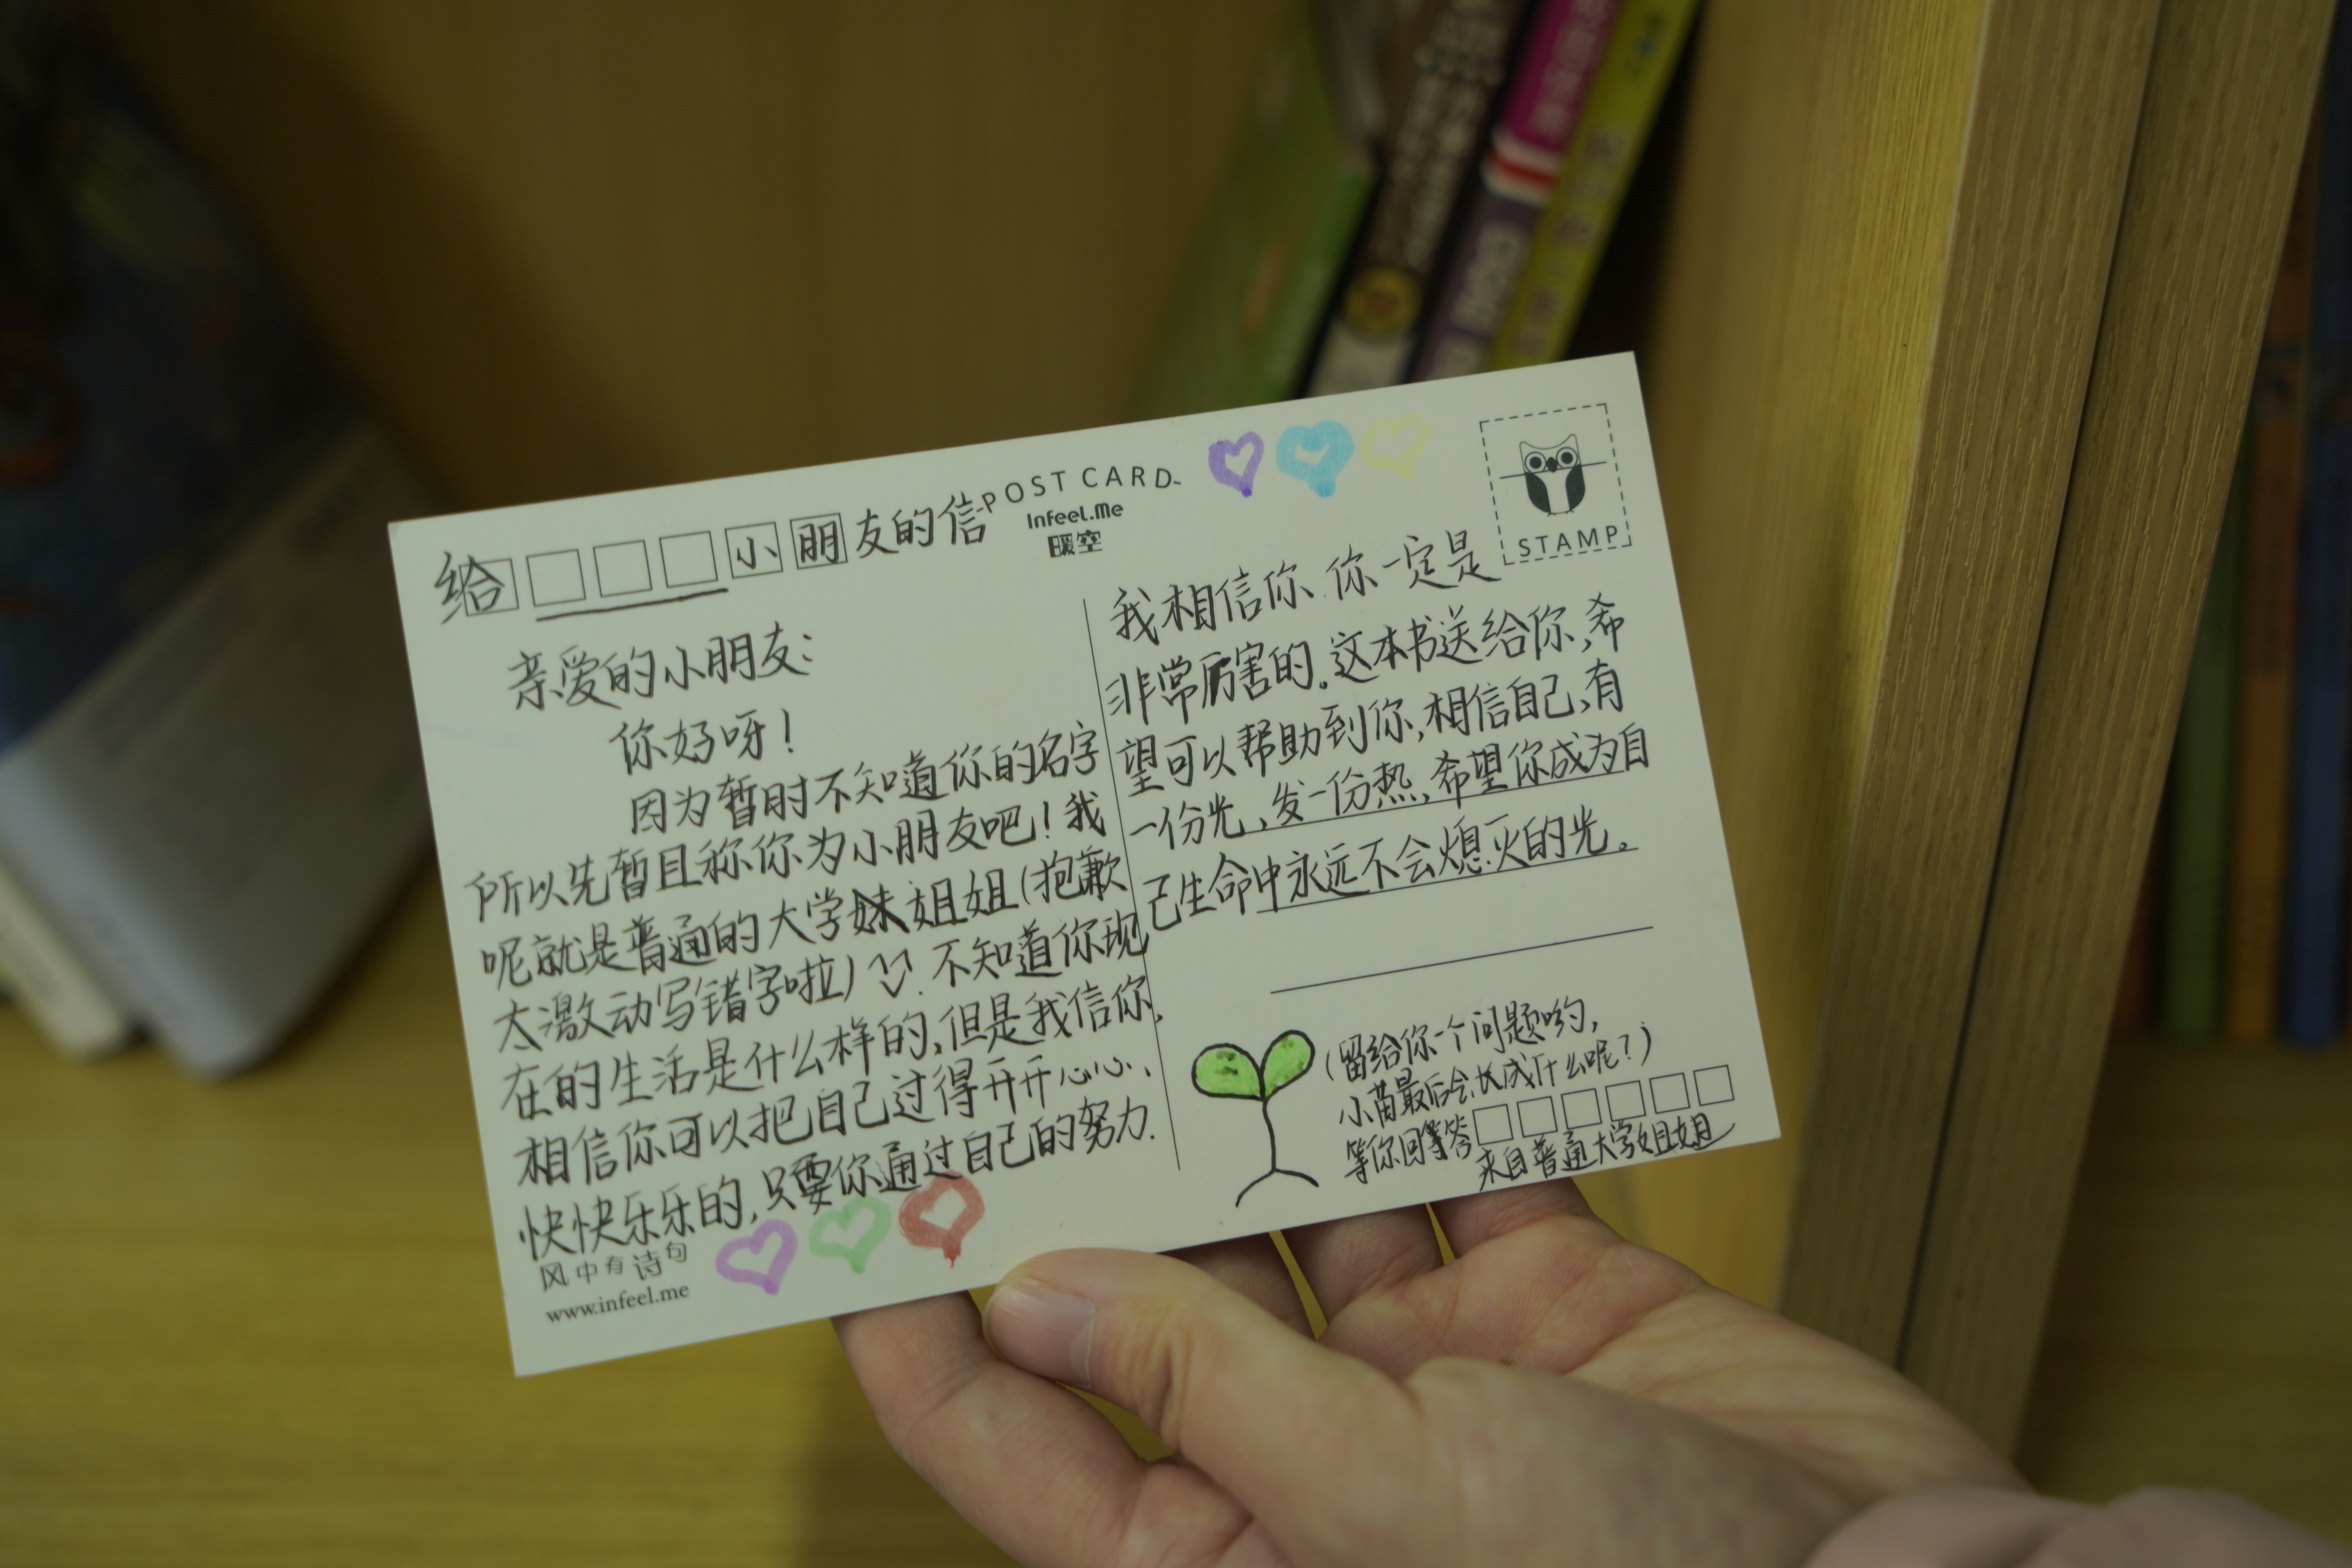 给 小朋友的信
-POST CARD-
InFeel.Me
暖空
STAMP
亲爱的小朋友:
你好呀!
因为暂时不知道你的名字
所以先暂且称你为小朋友吧!我
呢就是普通的大学姐姐(抱歉
太激动写错字啦) 不知道你现
在的生活是什么样的,但是我信你,
相信你可以把自己过得开开心心、
快快乐乐的,只要你通过自己的努力.
风中有诗句
www.infeel.me
我相信你 你一定是
非常厉害的。这本书送给你,希
望可以帮助到你,相信自己,有
一份光,发一份热,希望你成为自
己生命中永远不会熄灭的光。
(留给你一个问题哟,
小苗最后会长成什么呢?)
等你回答
来自普通大学姐姐